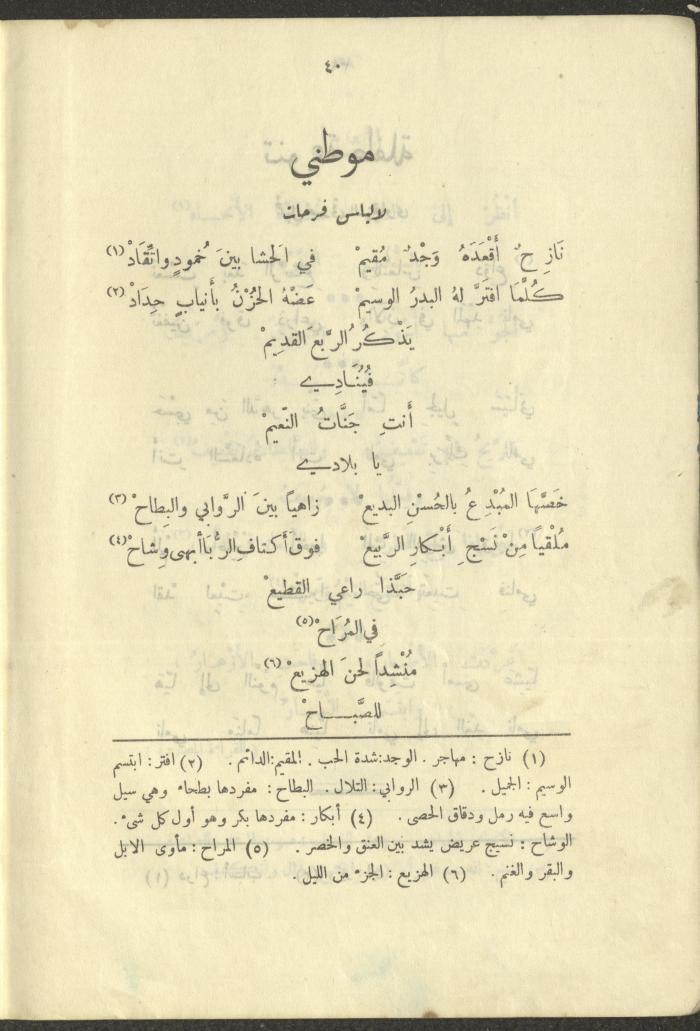 ٤٠
موطني
لالياس فرحات
نَازِحٌ أَقْعَدَهُ وَجْدٌ مُقيمْ في الحَشا بينَ خُمودٍ واتِّقَادْ (١)
كُلَّمَا افتَرَّ لهُ البدرُ الوسيمْ عَضَّهُ الحُزْنُ بأَنيابٍ حِدَادْ (٢)
يَذْكُرُ الرَّبعَ القديمْ
فَيُنَادِي
أَنتِ جَنَّاتُ النَّعيمْ
يا بلادي
خَصَّهَا المُبْدِعُ بالحُسْنِ البديعْ زاهياً بينَ الرَّوابي والبِطاحْ (٣)
مُلْقياً مِنْ نَسْجِ أَبْكارِ الرَّبيعْ فوقَ أَكتافِ الرُّبَا أَبهى وِشاحْ (٤)
حَبَّذا راعي القطيعْ
في المُرَاحْ (٥)
مُنْشِداً لحنَ الهزيعْ (٦)
للصَّبَاحْ
(١) نازح : مهاجر . الوجد:شدة الحب . المقيم:الدائم . (٢) افتر : ابتسم
الوسيم : الجميل . (٣) الروابي : التلال . البطاح : مفردها بطحاء وهي سيل
واسع فيه رمل ودقاق الحصى . (٤) أبكار : مفردها بكر وهو أول كل شيء .
الوشاح : نسيج عريض يشد بين العنق والخصر . (٥) المراح : مأوى الابل
والبقر والغنم . (٦) الهزيع : الجزء من الليل .